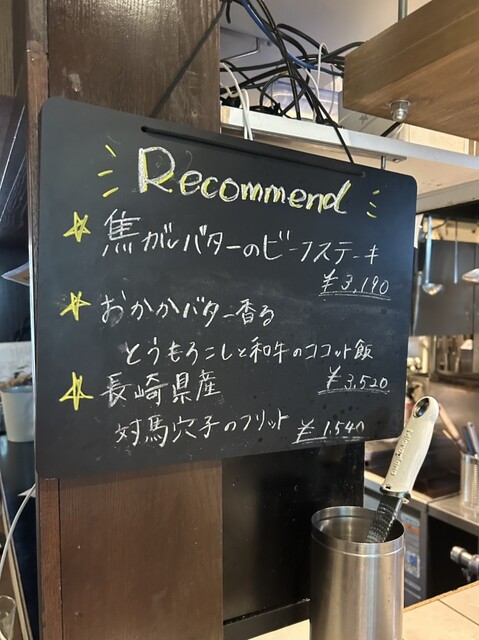 Recommend
焦がしバターのビーフステーキ
¥3,190
おかかバター香る
とうもろこしと和牛のココット飯
¥3,520
長崎県産
対馬穴子のフリット ¥1,540